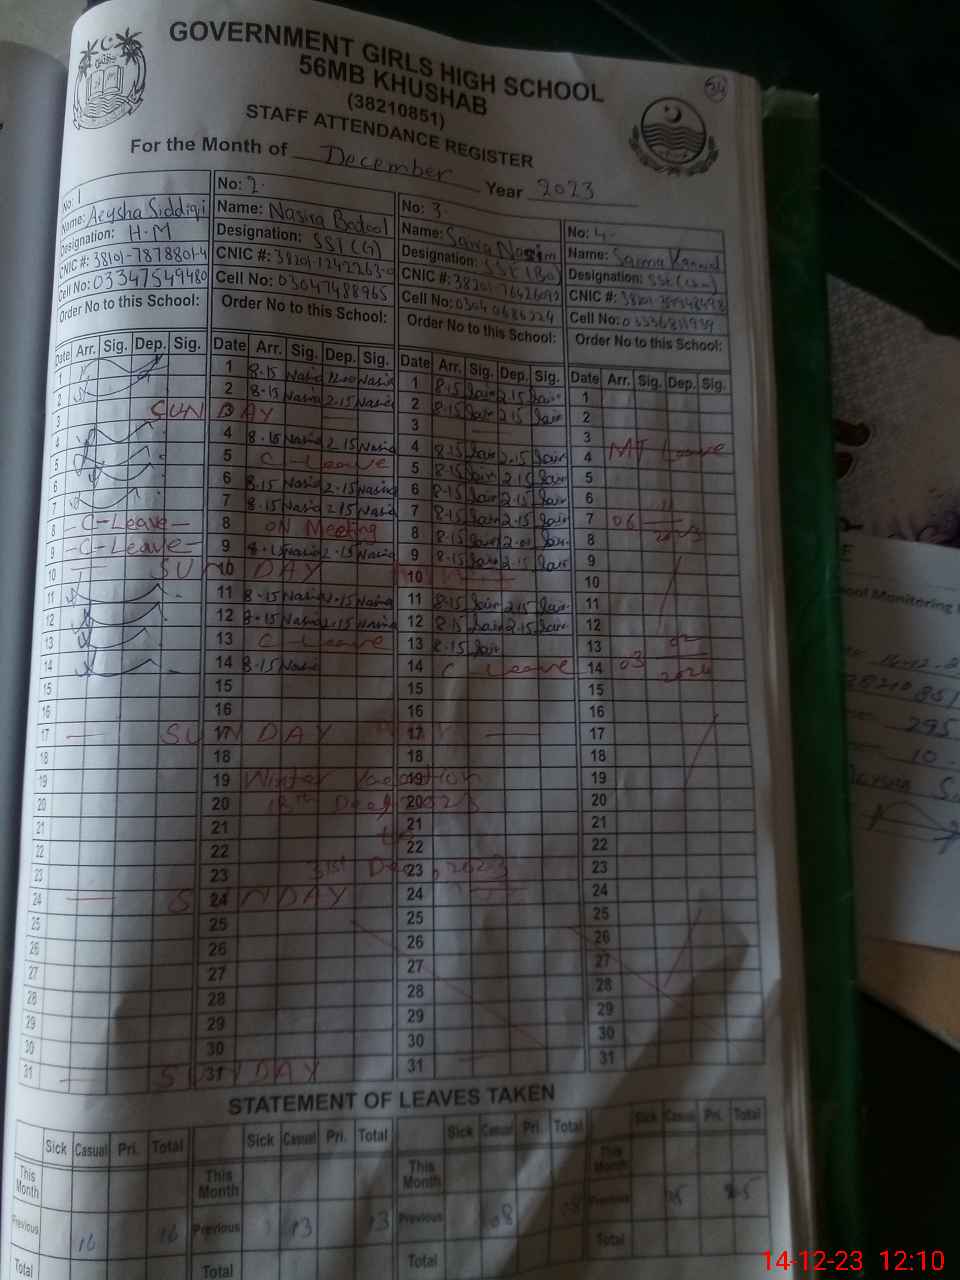 34
GOVERNMENT GIRLS HIGH SCHOOL
56MB KHUSHAB
(38210851)
STAFF ATTENDANCE REGISTER
For the Month of December Year 2023
No: 1
Name: Aeysha Siddiqi
Designation: H.M
CNIC #: 38101-7878801-4
Cell No: 03347549480
Order No to this School:
No: 2.
Name: Nasira Batool
Designation: SST(G)
CNIC #: 38201-1242263-0
Cell No: 03047488965
Order No to this School:
No: 3.
Name: Saira Nasim
Designation: SST(Bo)
CNIC #:
Cell No: 0304 0686224
Order No to this School:
No: 4.
Name: Saima Kanwal
Designation:
CNIC #:
Cell No:
Order No to this School:
Date Arr. Sig. Dep. Sig. Date Arr. Sig. Dep. Sig. Date Arr. Sig. Dep. Sig. Date Arr. Sig. Dep. Sig.
1 1 8-15 Nasira 12.00 Nasira 1 8-15 Sair 2.15 Sair 1
2 2 8-15 Nasira 2-15 Nasira 2 8-15 Sair 2.15 Sair 2
3 SUN 3 DAY 3 3
4 4 8-15 Nasira 2-15 Nasira 4 8-15 Sair 2.15 Sair 4 MT Leave
5 5 C-Leave 5 8-15 Sair 2-15 Sair 5
6 6 8.15 Nasira 2-15 Nasira 6 8-15 Sair 2-15 Sair 6
7 7 8-15 Nasira 2.15 Nasira 7 8-15 Sair 2-15 Sair 7 06 11
8 - C-Leave - 8 ON Meeting 8 8-15 Sair Sair 8 2023
9 - C-Leave - 9 8-15 Nasira 2-15 Nasira 9 8-15 Sair 2.15 Sair 9
10 SUN 10 DAY 10 10
11 11 8-15 Nasira 2-15 Nasira 11 8-15 Sair 2.15 Sair 11
12 12 8-15 Nasira 2-15 Nasira 12 8-15 Sair 2-15 Sair 12
13 13 C Leave 13 8-15 Sair 13 02
14 14 8-15 Nasira 14 C Leave 14 03 2024
15 15 15 15
16 16 16 16
17 — SUN 17 DAY 17 — 17
18 18 18 18
19 19 Winter Vacation 19 19
20 20 18th Dec, 2023 20 20
21 21 to 21 21
22 22 22 22
23 23 31st Dec, 2023 23 23
24 — SUN 24 DAY 24 24
25 25 25 25
26 26 26 26
27 27 27 27
28 28 28 28
29 29 29 29
30 30 30 30
31 — SUN 31 DAY 31 31
STATEMENT OF LEAVES TAKEN
Sick Casual Pri. Total Sick Casual Pri. Total Sick Casual Pri. Total Sick Casual Pri. Total
This Month This Month This Month This Month
Previous 16 16 Previous 13 13 Previous 08 08 Previous
Total Total Total Total
ool Monitoring
295
10
14-12-23 12:10